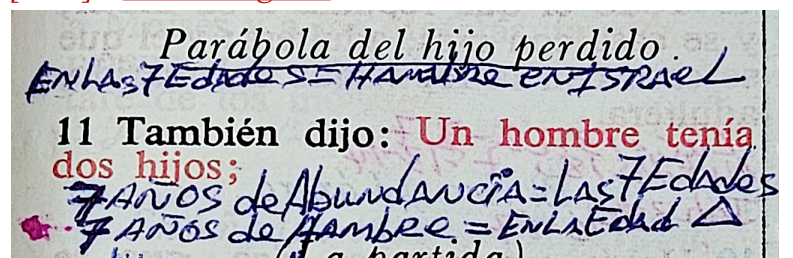 Parábola del hijo perdido.
EN LAS 7 Edades = HAMBRE EN ISRAEL
11 También dijo: Un hombre tenía
dos hijos;
7 AÑOS de AbundANCIA = LAS 7 Edades
7 AÑOS de HAMbRE = EN LA Edad Δ
(La partida)